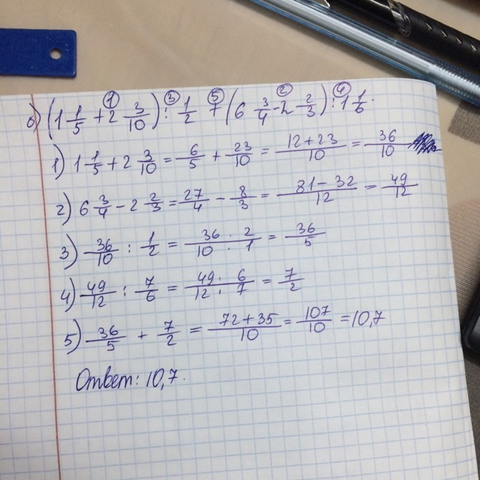 б) (1 1/5 + 2 3/10) : 1/2 + (6 3/4 - 2 2/3) : 1 1/6.
1) 1 1/5 + 2 3/10 = 6/5 + 23/10 = 12+23/10 = 36/10
2) 6 3/4 - 2 2/3 = 27/4 - 8/3 = 81-32/12 = 49/12
3) 36/10 : 1/2 = 36 · 2/10 · 1 = 36/5
4) 49/12 : 7/6 = 49 · 6/12 · 7 = 7/2
5) 36/5 + 7/2 = 72+35/10 = 107/10 = 10,7
Ответ: 10,7.